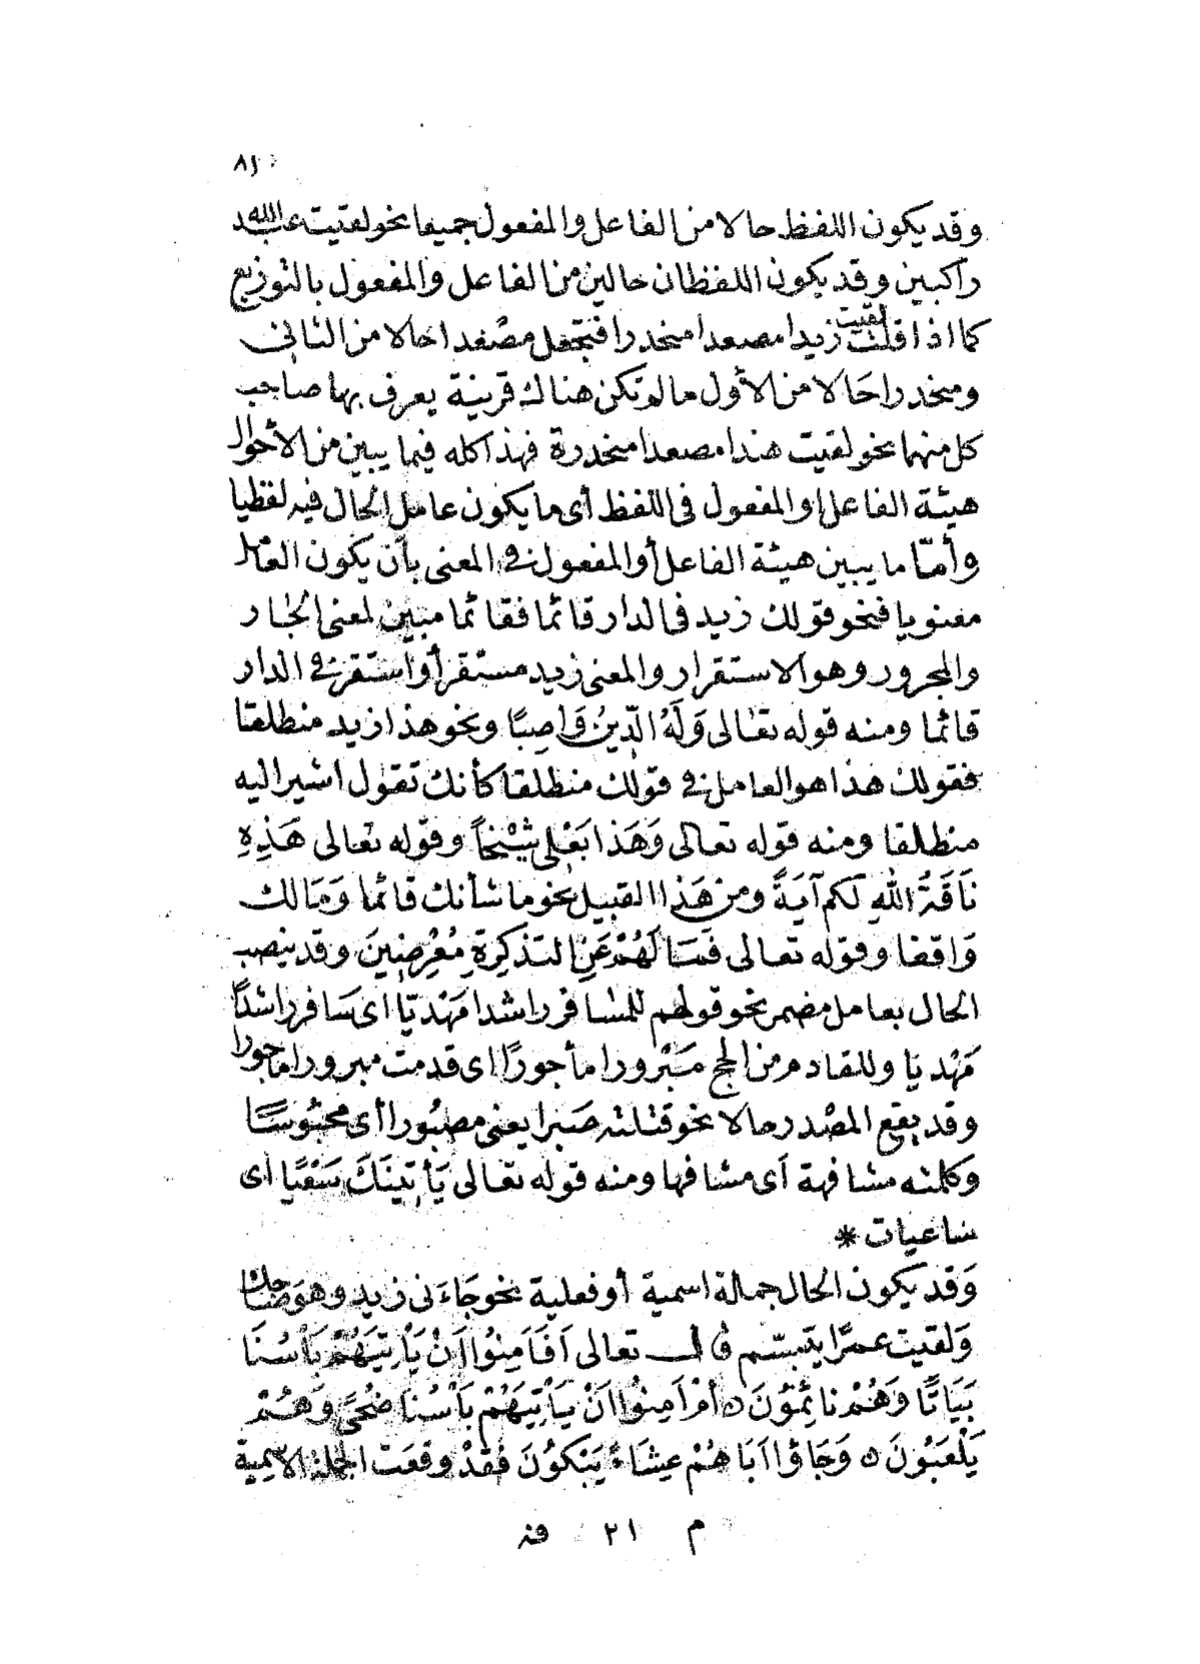 ٨١
وقد يكون اللفظ حالا من الفاعل والمفعول جميعا نحو لقتيت عبد الله
راكبين وقد يكون اللفظان حالين من الفاعل والمفعول بالتوزيع
كما اذا قلت لقيت زيدا مصعدا منحدرا فتجعل مصْعدا حالا من الثانى
ومنحدرا حَالا من الأول ما لم تكن هناك قرينة يعرف بها صاحب
كل منهما نحو لقتيت هندا مصعدا منحدرة فهذا كله فيما يبين من الأحوال
هيئة الفاعل او المفعول فى اللفظ أى ما يكون عامل الحال فيه لفظيا
وأمّا ما يبين هيئة الفاعل أو المفعول فى المعنى بأن يكون العامل
معنويا فنحو قولك زيد فى الدار قائما فقائما مبين لمعنى الجار
والمجرور وهو الاستقرار والمعنى زيد مستقر أو استقر فى الدار
قائما ومنه قوله تعالى وَلَهُ الدِّينُ وَاصِبًا ونحو هذا زيد منطلقا
فقولك هذا هو العامل فى قولك منطلقا كأنك تقول اشير اليه
منطلقا ومنه قوله تعالى وَهَذَا بَعْلِى شَيْخاً وقوله تعالى هَذِهِ
نَاقَةُ اللهِ لَكُم آيَةً ومن هَذا القبيل نحو ما شأنك قائما وَمَالك
وَاقفا وقوله تعالى فَمَا لَهُمْ عَنِ التَذكِرَةِ مُعْرِضِينَ وقد ينصب
الحال بعامل مضمر نحو قولهم للمسَافر راشدا مَهْديّا اى سَافر راشدًا
مَهْديا وللقادم من الحج مَبْرورا مأجورًا اى قدمت مبرورا ماجورا
وقد يقع المصْدر حالا نحو قتلته صَبرا يعنى مصبُورا أى محبُوسًا
وَكلمته مشافهة أى مشافها ومنه قوله تعالى يَأتِينَكَ سَعْيًا أى
ساعيات *
وَقد يكون الحال جمالة اسمية أو فعلية نحو جَاءَنى زيد وهوَ ضاحك
وَلقيت عمرًا يتبسّم قال تعالى أَفَأَمِنُوا أَنْ يَأْتِيَهُمْ بَأْسُنَا
بَيَاتًا وَهُمْ نائِمُونَ ۝ أمْ أَمِنُوا أنْ يَأْتِيَهُمْ بَأْسُنَا ضُحًى وَهُمْ
يَلْعَبُونَ ۝ وَجَاؤا أبَاهُمْ عِشَاءً يَبْكُونَ فَقَدْ وقعَت الجملة الاسمية
م ٢١ فنـ